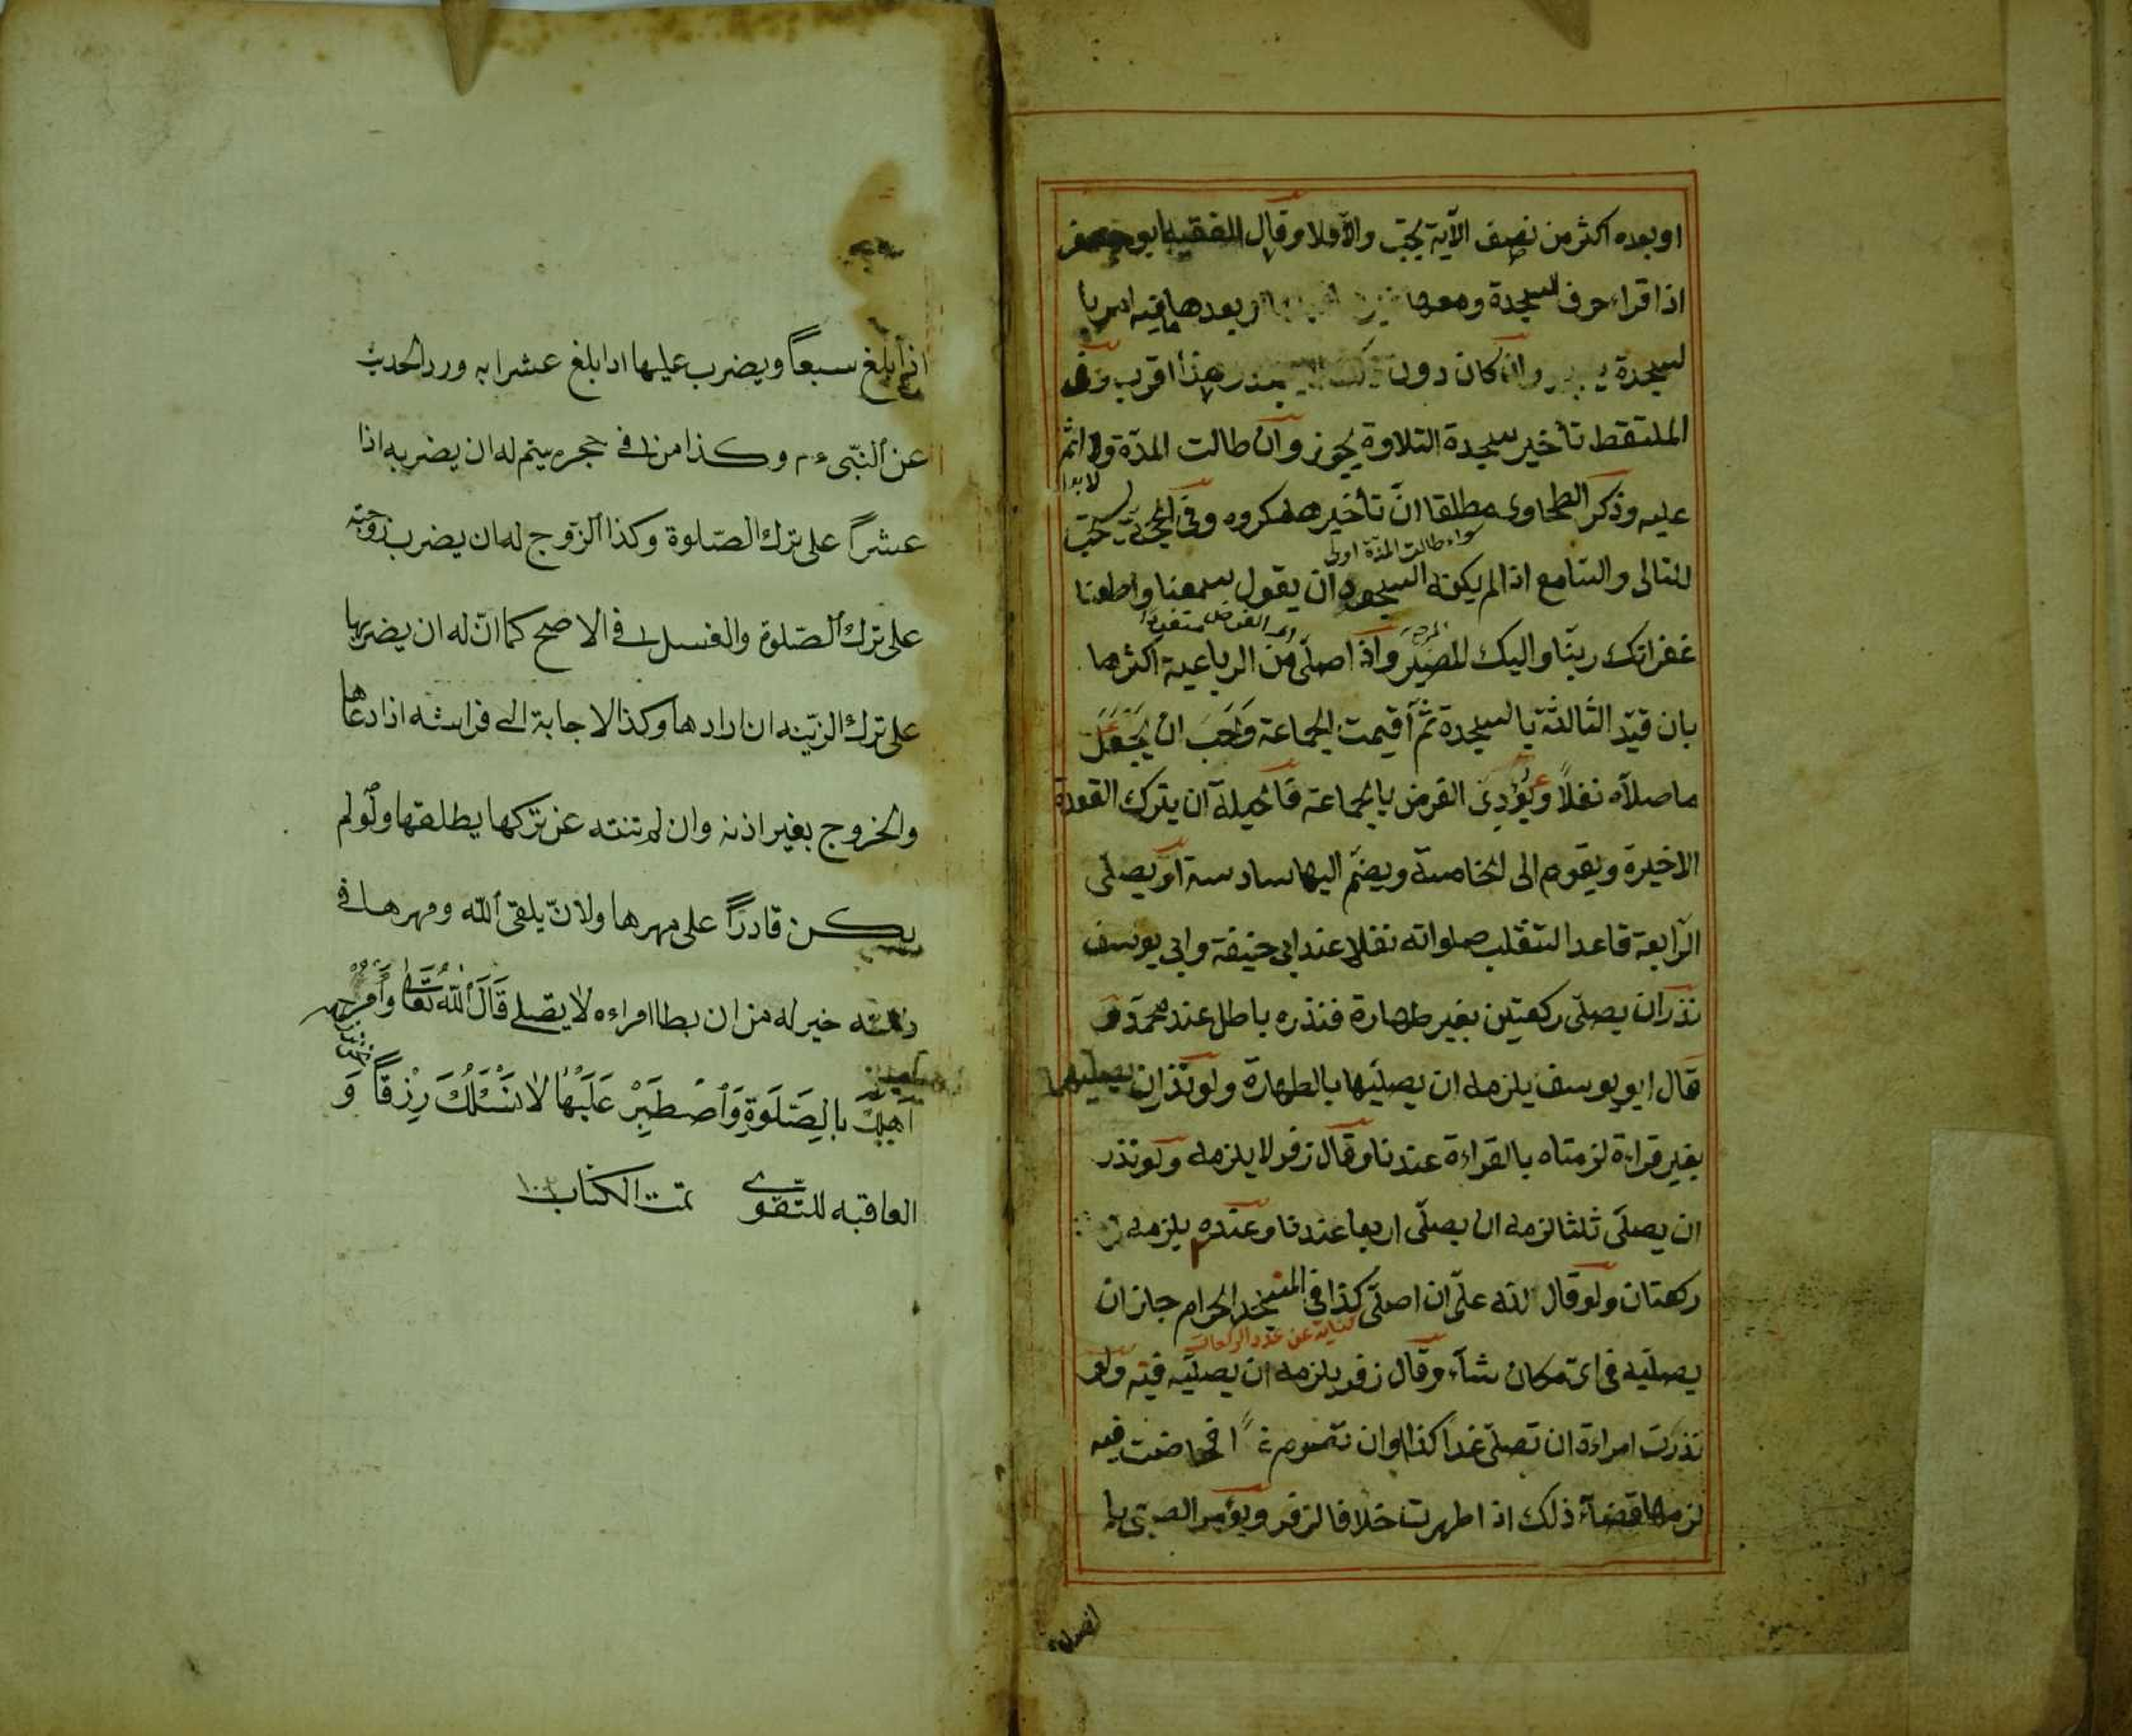 او بعده اكثر من نصف الآية يجب والا فلا وقال الفقيه ابو جعفر
اذا قراء حرف السجدة ومعها او بعدها فيه امر با
لسجدة وان كان دون هذا اقرب وفى
الملتقط تأخير سجدة التلاوة يجوز وان طالت المدة ولا اثم
عليه وذكر الطحاوى مطلقا ان تأخيرها مكروه وفى الحجة يستحب
سواء طالت المدة اولى
للتالى والسامع اذا لم يكنه السجود ان يقول سمعنا واطعنا
اى الفرض منفردا
غفرانك ربنا واليك المصير واذا صلى من الرباعية اكثرها
بان قيّد الثالثة بالسجدة ثم أقيمت الجماعة وَاحَبَ ان يَجْعَل
ما صلاه نفلاً ويُؤدِىَ الفرض بالجماعة فالحيلة ان يترك القعدة
الاخيرة ويقوم الى الخامسة ويضم اليها سادسة او يصلى
الرّابعة قاعدا لتنقلب صلواته نفلا عند ابى حنيفة وابى يوسف
نذر ان يصلّى ركعتين بغير طهارة فنذره باطل عند محمد و
قال ابو يوسف يلزمه ان يصليها بالطهارة ولو نذر ان يصليهما
بغير قراءة لزمتاه بالقراءة عندنا وقال زفر لا يلزمه ولو نذر
ان يصلّى ثلثا لزمه ان يصلّى اربعا عندنا وعنده يلزمه
ركعتان ولو قال لله علىّ ان اصلّى كذا فى المسجد الحرام جاز ان
كناية عن عدد الركعات
يصليه فى اىّ مكان شآء وقال زفر يلزمه ان يصليه فيه ولو
نذرت امراءة ان تصلّى غدا كذا وان تصوم غدا فحاضت فيه
لزمها قضآء ذلك اذا طهرت خلافا لزفر ويؤمر الصبى با
اذا بلغ سبعاً ويضرب عليها اذا بلغ عشرا به ورد الحديث
عن النّبىء م وكذا من فى حجره يتيم له ان يضربه اذا
عشراً على ترك الصّلوة وكذا الزّوج له ان يضرب زوجته
على ترك الصّلوة والغسل فى الاصح كما انّ له ان يضربها
على ترك الزّينه ان ارادها وكذا الاجابة الى فراشه اذا دعاها
والخروج بغير اذنه وان لم تنته عن تركها يطلقها ولو لم
يكن قادرًا على مهرها ولانّ يلقى الله ومهرها فى
ذمته خير له من ان يطا امراءه لا يصلى قَالَ الله تعالى وَأْمُرْ
اَهْلَكَ بِالصَّلَوةِ وَاصْطَبِرْ عَلَيْهَا لَا نَسْئَلُكَ رِزْقًا وَ
العاقبه للتّقوى تمت الكتاب